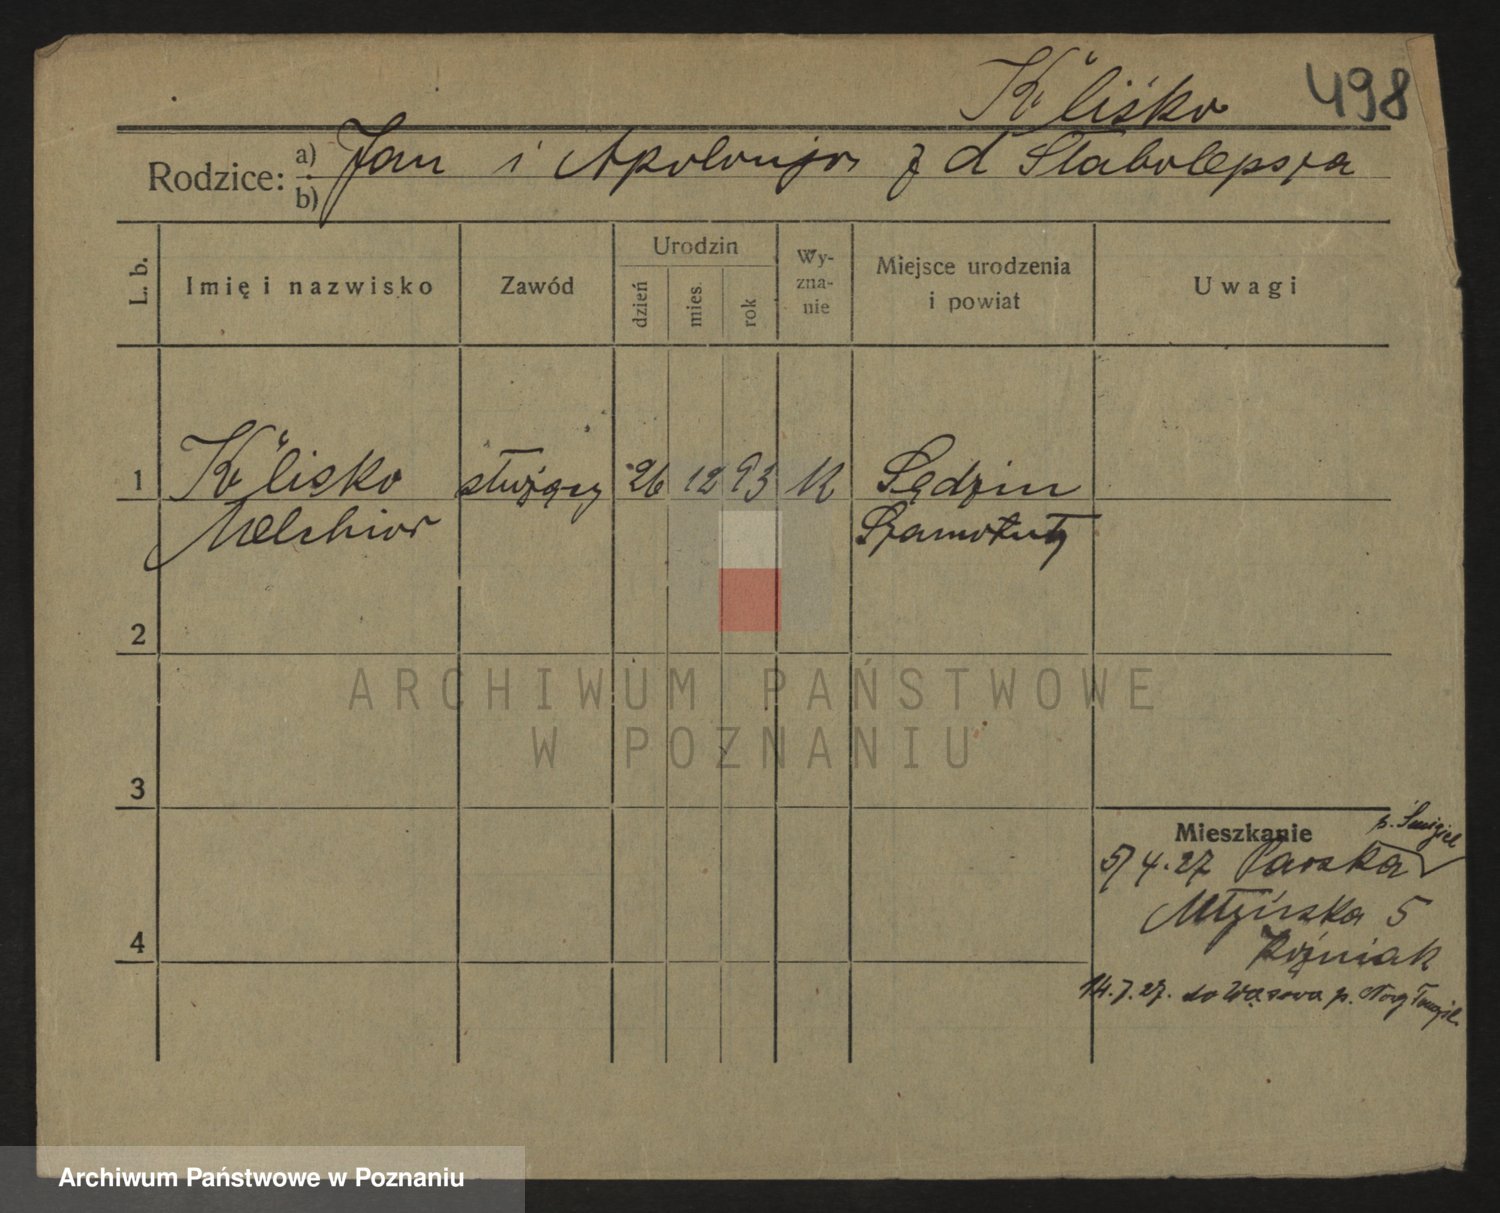 Kliśko 498
Rodzice: a) Jan i Apolonja z d Slabolepsza
b)
L. b. Imię i nazwisko Zawód Urodzin dzień mies. rok Wyznanie Miejsce urodzenia i powiat Uwagi
1 Klisko służący 26 12 93 K Sędzin
Melchior Szamotuły
2
ARCHIWUM PAŃSTWOWE
W POZNANIU
3
Mieszkanie p. Śmigiel
5/4.27 Parska
Młyńska 5
Woźniak
14.7.27. do Wąsowa p. Nowy Tomyśl
4
Archiwum Państwowe w Poznaniu